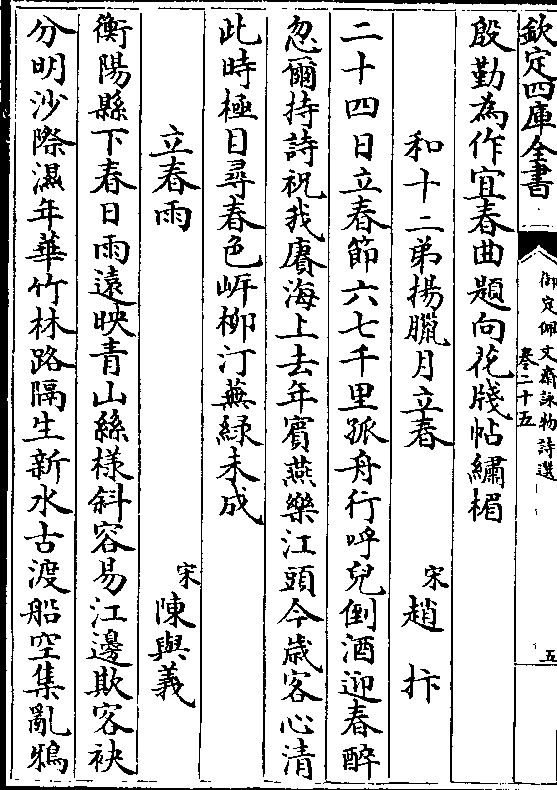 欽定四庫全書
御定佩文齋詠物詩選
卷二十五
五
殷勤為作宜春曲題向花牋帖繡楣
和十二弟揚臘月立春
宋趙抃
二十四日立春節六七千里孤舟行呼兒倒酒迎春醉
忽爾持詩祝我賡海上去年賓燕樂江頭今歲客心清
此時極目尋春色㟁柳汀蕪緑未成
立春雨
宋陳與義
衡陽縣下春日雨遠映青山絲様斜容易江邊欺客袂
分明沙際濕年華竹林路隔生新水古渡船空集亂鴉